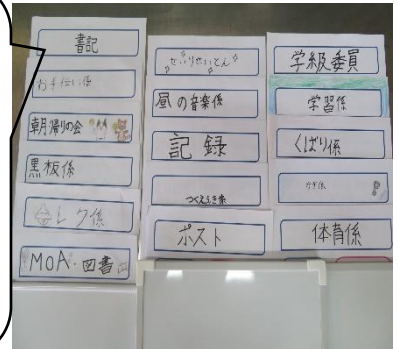 書記
お手伝い係
朝・帰りの会
黒板係
レク係
MOA・図書
せいりせいとん
昼の音楽係
記録
つくえふき係
ポスト
学級委員
学習係
くばり係
かぎ係
体育係